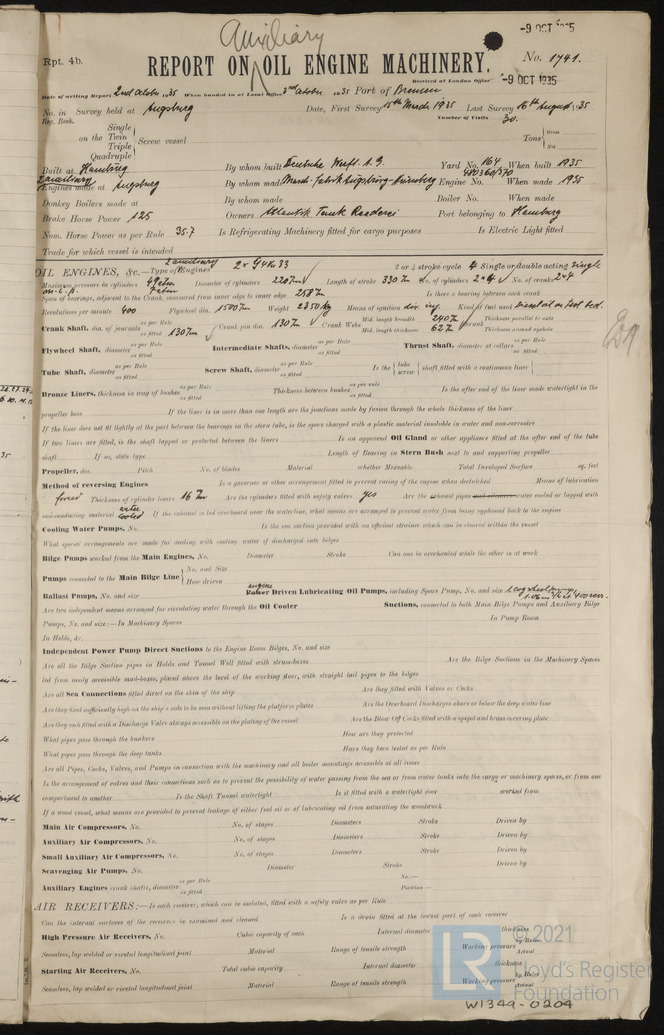 Auxiliary
-9 OCT 1935
Rpt. 4b.
REPORT ON OIL ENGINE MACHINERY.
No. 1741.
Received at London Office -9 OCT 1935
Date of writing Report 2nd Octobr 1935 When handed in at Local Office 3rd October 1935 Port of Bremen
No. in Survey held at Augsburg Date, First Survey 15th March 1935 Last Survey 16th August 1935
Reg. Book. Number of Visits 30.
Single
on the Twin
Triple
Quadruple
Screw vessel
Tons Gross
Net
Built at Hamburg By whom built Deutsche Werft A.G. Yard No. 164 When built 1935
2 auxiliary
Engines made at Augsburg By whom made Masch. Fabrik Augsburg-Nürnberg Engine No. 480360/370 When made 1935
Donkey Boilers made at By whom made Boiler No. When made
Brake Horse Power 125 Owners Atlantik Tank Reederei Port belonging to Hamburg
Nom. Horse Power as per Rule 35.7 Is Refrigerating Machinery fitted for cargo purposes Is Electric Light fitted
Trade for which vessel is intended
OIL ENGINES, &c.—Type of Engines 2 auxiliary 2 x G4Ku33 2 or 4 stroke cycle 4 Single or double acting single
Maximum pressure in cylinders 49 atm Diameter of cylinders 220 Length of stroke 330 No. of cylinders 2x4 No. of cranks 2x4
Span of bearings, adjacent to the Crank, measured from inner edge to inner edge 258 Is there a bearing between each crank
Revolutions per minute 400 Flywheel dia. 1500 Weight 2350 kg Means of ignition dir. inj. Kind of fuel used Diesel oil
Crank Shaft, dia. of journals as per Rule as fitted 130 Crank pin dia. 130 Crank Webs Mid. length breadth 240 Mid. length thickness 62 Thickness parallel to axis Thickness around eyehole
Flywheel Shaft, diameter as per Rule as fitted Intermediate Shafts, diameter as per Rule as fitted Thrust Shaft, diameter at collars as per Rule as fitted
Tube Shaft, diameter as per Rule as fitted Screw Shaft, diameter as per Rule as fitted Is the tube screw shaft fitted with a continuous liner
Bronze Liners, thickness in way of bushes as per Rule as fitted Thickness between bushes as per rule as fitted Is the after end of the liner made watertight in the
propeller boss If the liner is in more than one length are the junctions made by fusion through the whole thickness of the liner
If the liner does not fit tightly at the part between the bearings in the stern tube, is the space charged with a plastic material insoluble in water and non-corrosive
If two liners are fitted, is the shaft lapped or protected between the liners Is an approved Oil Gland or other appliance fitted at the after end of the tube
shaft If so, state type Length of Bearing in Stern Bush next to and supporting propeller
Propeller, dia. Pitch No. of blades Material whether Moveable Total Developed Surface sq. feet
Method of reversing Engines Is a governor or other arrangement fitted to prevent racing of the engine when declutched Means of lubrication
forced Thickness of cylinder liners 16 Are the cylinders fitted with safety valves yes Are the exhaust pipes and silencers water cooled or lagged with
non-conducting material water cooled If the exhaust is led overboard near the waterline, what means are arranged to prevent water from being syphoned back to the engine
Cooling Water Pumps, No. Is the sea suction provided with an efficient strainer which can be cleared within the vessel
What special arrangements are made for dealing with cooling water if discharged into bilges
Bilge Pumps worked from the Main Engines, No. Diameter Stroke Can one be overhauled while the other is at work
Pumps connected to the Main Bilge Line No. and Size How driven
Ballast Pumps, No. and size engine Power Driven Lubricating Oil Pumps, including Spare Pump, No. and size 1 cogwheel pump
Are two independent means arranged for circulating water through the Oil Cooler Suctions, connected to both Main Bilge Pumps and Auxiliary Bilge
Pumps, No. and size:—In Machinery Spaces In Pump Room
In Holds, &c.
Independent Power Pump Direct Suctions to the Engine Room Bilges, No. and size
Are all the Bilge Suction pipes in Holds and Tunnel Well fitted with strum-boxes Are the Bilge Suctions in the Machinery Spaces
led from easily accessible mud-boxes, placed above the level of the working floor, with straight tail pipes to the bilges
Are all Sea Connections fitted direct on the skin of the ship Are they fitted with Valves or Cocks
Are they fixed sufficiently high on the ship's side to be seen without lifting the platform plates Are the Overboard Discharges above or below the deep water line
Are they each fitted with a Discharge Valve always accessible on the plating of the vessel Are the Blow Off Cocks fitted with a spigot and brass covering plate
What pipes pass through the bunkers How are they protected
What pipes pass through the deep tanks Have they been tested as per Rule
Are all Pipes, Cocks, Valves, and Pumps in connection with the machinery and all boiler mountings accessible at all times
Is the arrangement of valves and their connections such as to prevent the possibility of water passing from the sea or from water tanks into the cargo or machinery spaces, or from one
compartment to another Is the Shaft Tunnel watertight Is it fitted with a watertight door worked from
If a wood vessel, what means are provided to prevent leakage of either fuel oil or of lubricating oil from saturating the woodwork
Main Air Compressors, No. No. of stages Diameters Stroke Driven by
Auxiliary Air Compressors, No. No. of stages Diameters Stroke Driven by
Small Auxiliary Air Compressors, No. No. of stages Diameters Stroke Driven by
Scavenging Air Pumps, No. Diameter Stroke Driven by
Auxiliary Engines crank shafts, diameter as per Rule as fitted No. Position
AIR RECEIVERS:—Is each receiver, which can be isolated, fitted with a safety valve as per Rule
Can the internal surfaces of the receivers be examined and cleaned Is a drain fitted at the lowest part of each receiver
High Pressure Air Receivers, No. Cubic capacity of each Internal diameter thickness
Seamless, lap welded or riveted longitudinal joint Material Range of tensile strength Working pressure by Rules Actual
Starting Air Receivers, No. Total cubic capacity Internal diameter thickness
Seamless, lap welded or riveted longitudinal joint Material Range of tensile strength Working pressure by Rules Actual
LR
© 2021
Lloyd's Register
Foundation
W1349-0204